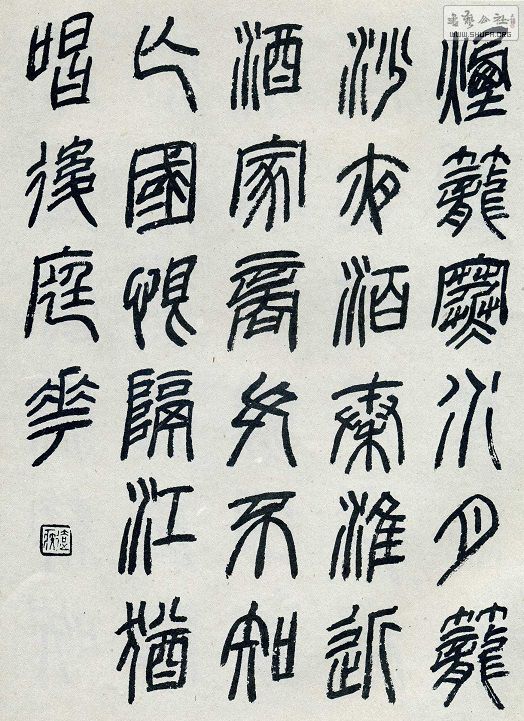 煙籠寒水月籠
沙夜泊秦淮近
酒家商女不知
亡國恨隔江猶
唱後庭花
書藝公社
WWW.SHUFA.ORG